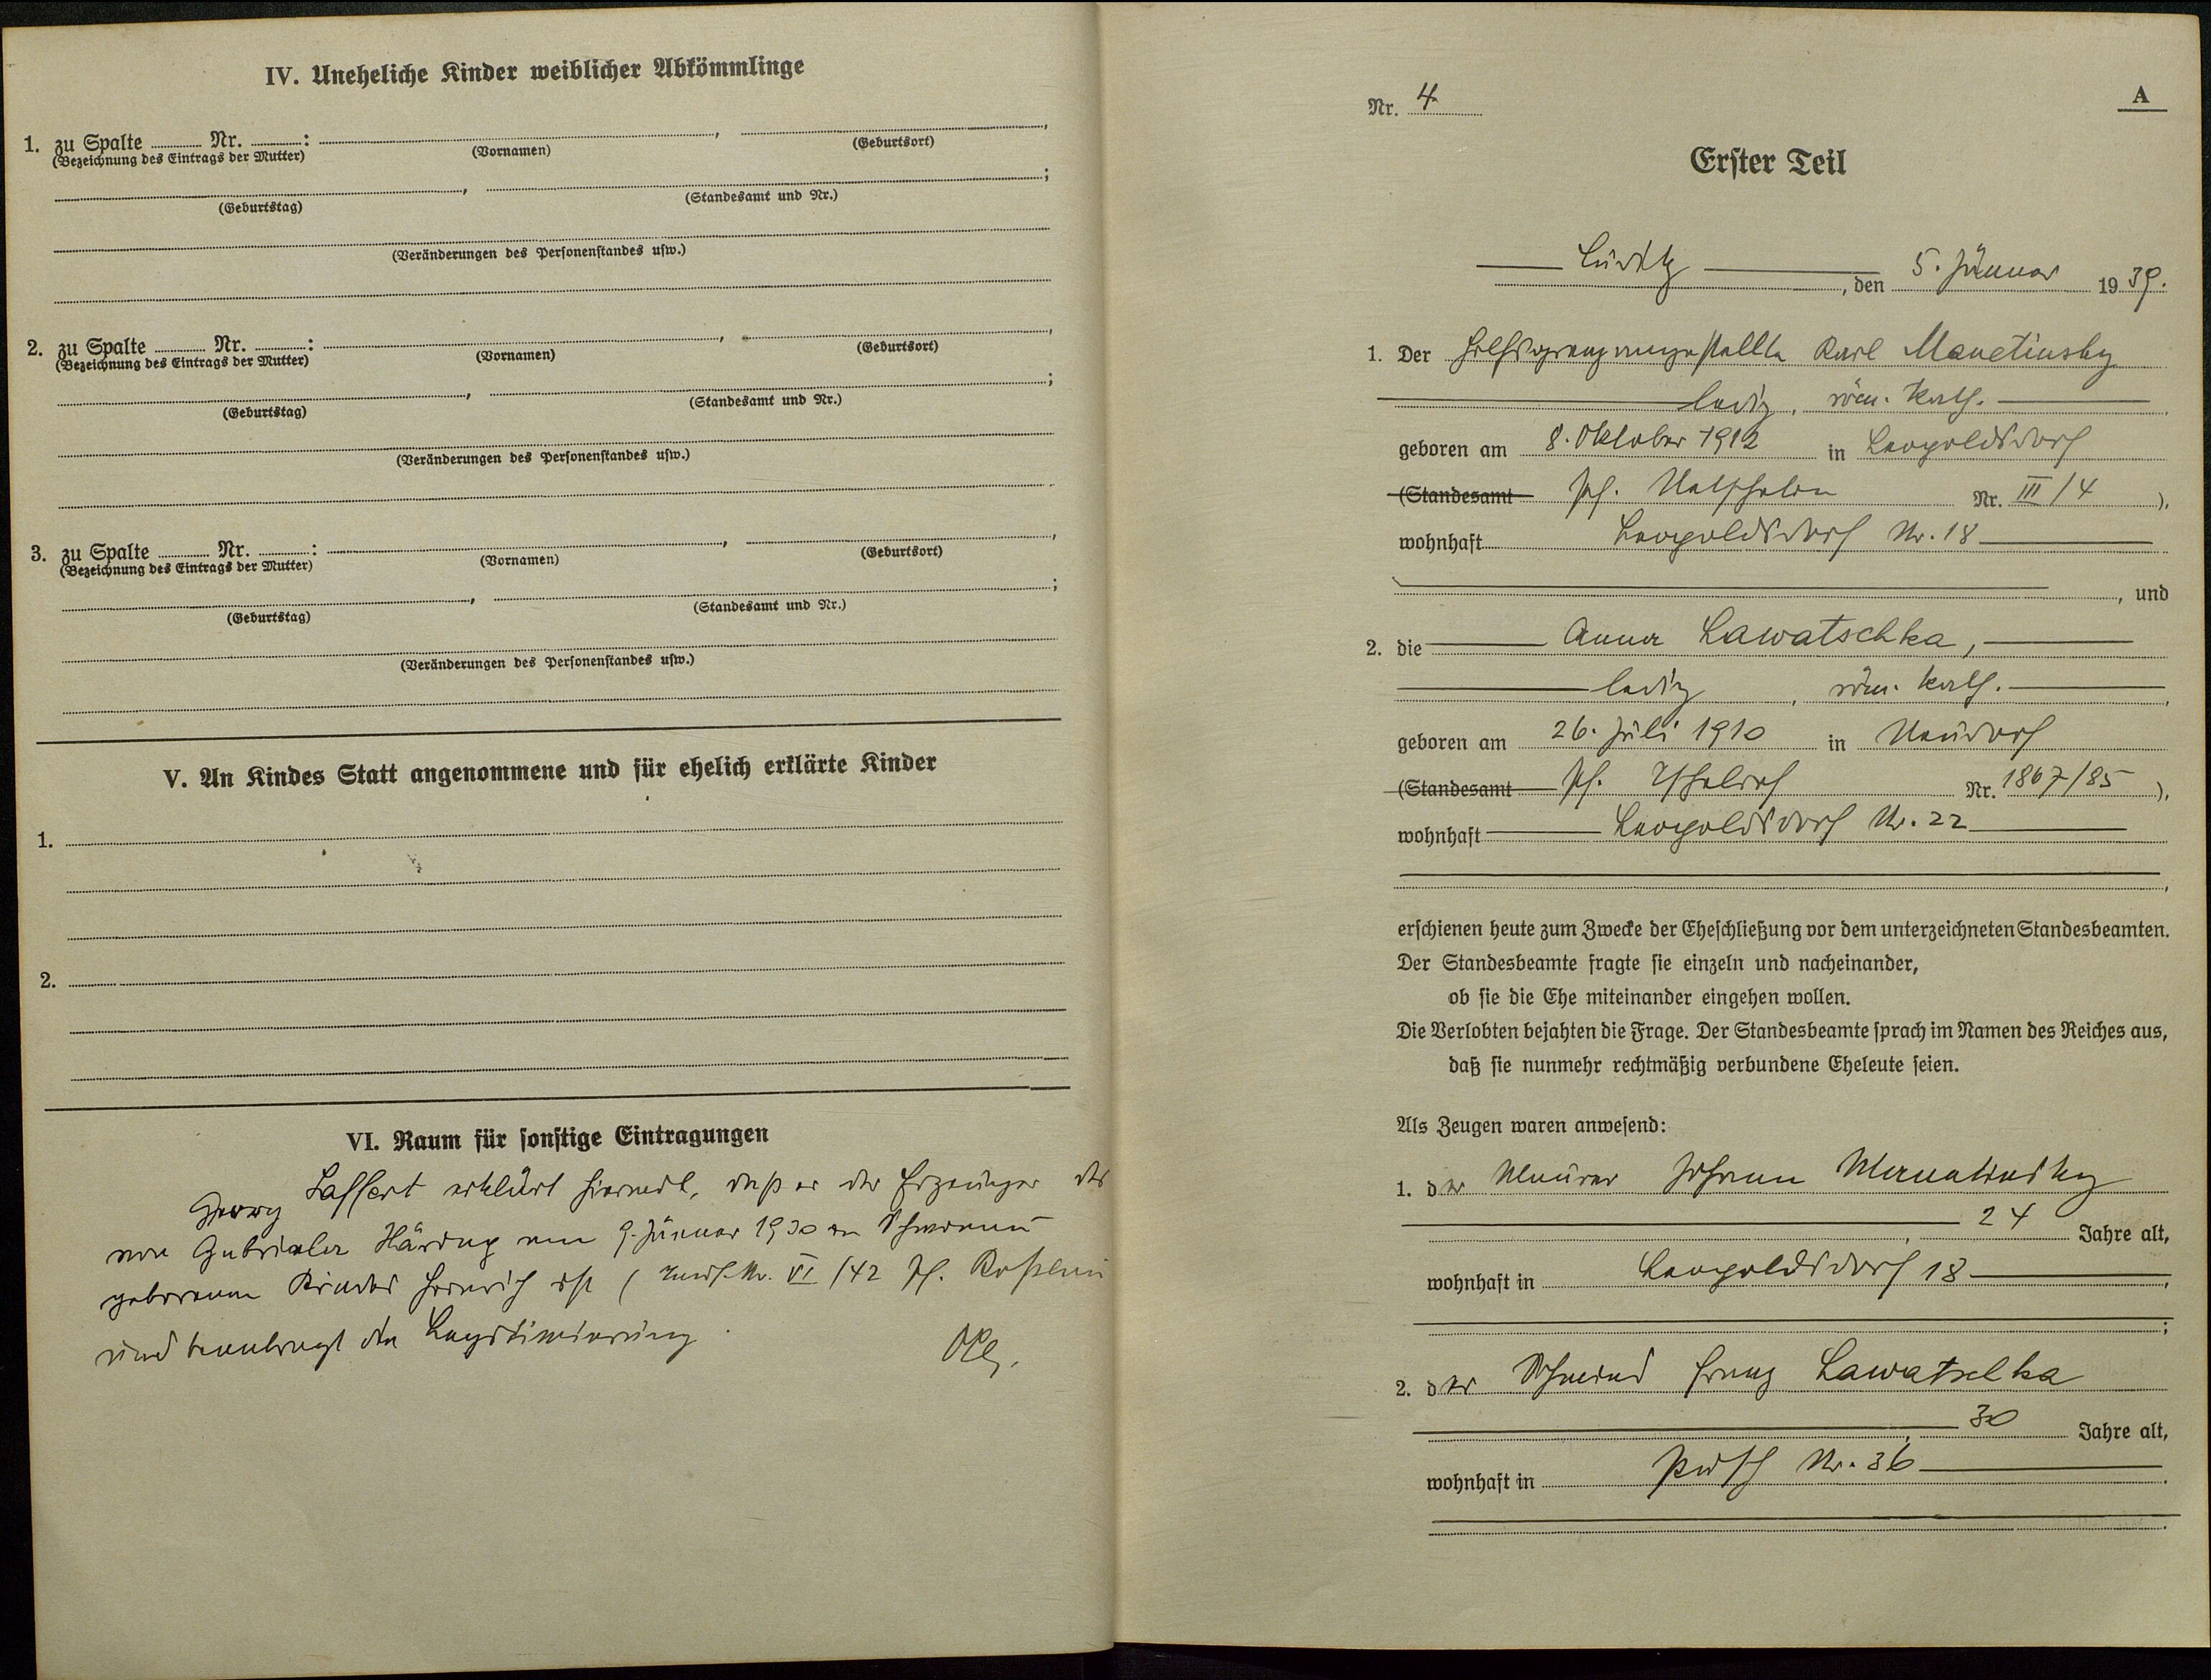 IV. Uneheliche Kinder weiblicher Abkömmlinge
1. zu Spalte Nr. : , ,
(Bezeichnung des Eintrags der Mutter) (Vornamen) (Geburtsort)
, ;
(Geburtstag) (Standesamt und Nr.)
(Veränderungen des Personenstandes usw.)
2. zu Spalte Nr. : , ,
(Bezeichnung des Eintrags der Mutter) (Vornamen) (Geburtsort)
, ;
(Geburtstag) (Standesamt und Nr.)
(Veränderungen des Personenstandes usw.)
3. zu Spalte Nr. : , ,
(Bezeichnung des Eintrags der Mutter) (Vornamen) (Geburtsort)
, ;
(Geburtstag) (Standesamt und Nr.)
(Veränderungen des Personenstandes usw.)
V. An Kindes Statt angenommene und für ehelich erklärte Kinder
1.
2.
VI. Raum für sonstige Eintragungen
Georg Laffert erklärt hiermit, daß er der Erzeuger des
von Gabriela Häring am 9. Jänner 1930 in
geborenen Kindes Heinrich ist ( VI/42 Pf.
und beantragt die Legitimierung.
Nr. 4 A
Erster Teil
, den 5. Jänner 1939.
1. Der Karl Manetinsky
ledig, röm. kath.
geboren am 8. Oktober 1912 in Leopoldsdorf
(Standesamt Pf. Nr. III/4 ),
wohnhaft Leopoldsdorf Nr. 18
, und
2. die Anna Lawatschka,
ledig, röm. kath.
geboren am 26. Juli 1910 in Neudorf
(Standesamt Pf. Nr. 1867/85 ),
wohnhaft Leopoldsdorf Nr. 22
,
erschienen heute zum Zwecke der Eheschließung vor dem unterzeichneten Standesbeamten.
Der Standesbeamte fragte sie einzeln und nacheinander,
ob sie die Ehe miteinander eingehen wollen.
Die Verlobten bejahten die Frage. Der Standesbeamte sprach im Namen des Reiches aus,
daß sie nunmehr rechtmäßig verbundene Eheleute seien.
Als Zeugen waren anwesend:
1. der Maurer Johann Manetinsky
, 24 Jahre alt,
wohnhaft in Leopoldsdorf 18
;
2. der Schmied Franz Lawatschka
, 30 Jahre alt,
wohnhaft in Nr. 36